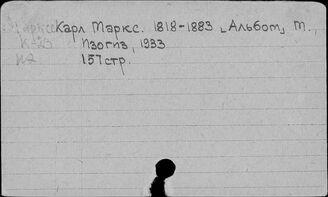 Карл Маркс. 1818-1883 [Альбом] М.,
К-23 Изогиз, 1933
157стр.